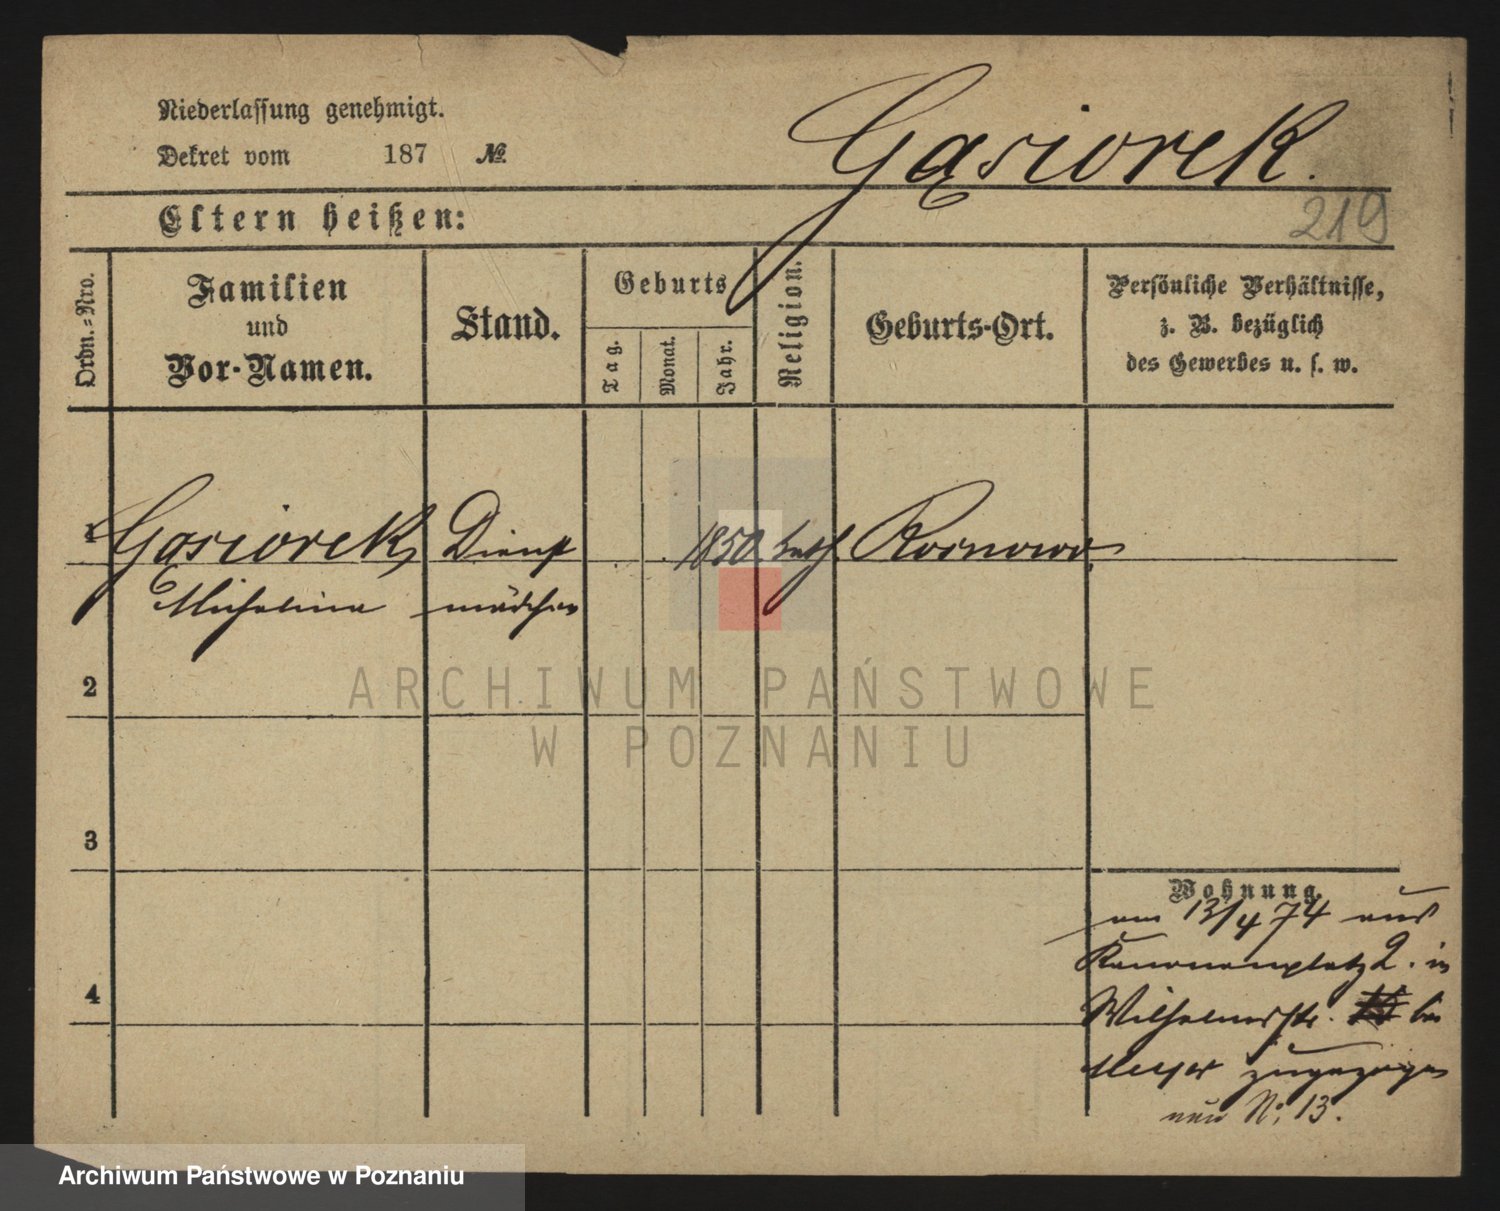 Niederlassung genehmigt.
Dekret vom 187 №
Gąsiorek.
219
Eltern heißen:
Ordn.=Nro.
Familien
und
Vor-Namen.
Stand.
Geburts
Tag.
Monat.
Jahr.
Religion.
Geburts-Ort.
Persönliche Verhältnisse,
z. B. bezüglich
des Gewerbes u. s. w.
1 Gąsiorek, Dienst 1850. kath. Rosnowo,
Michalina mädchen
2
ARCHIWUM PAŃSTWOWE
W POZNANIU
3
Wohnung.
am 13/4 74 aus
Kanonenplatz 2. in
Wilhelmsstr. bei
Meyer zugezogen
nun N: 13.
4
Archiwum Państwowe w Poznaniu